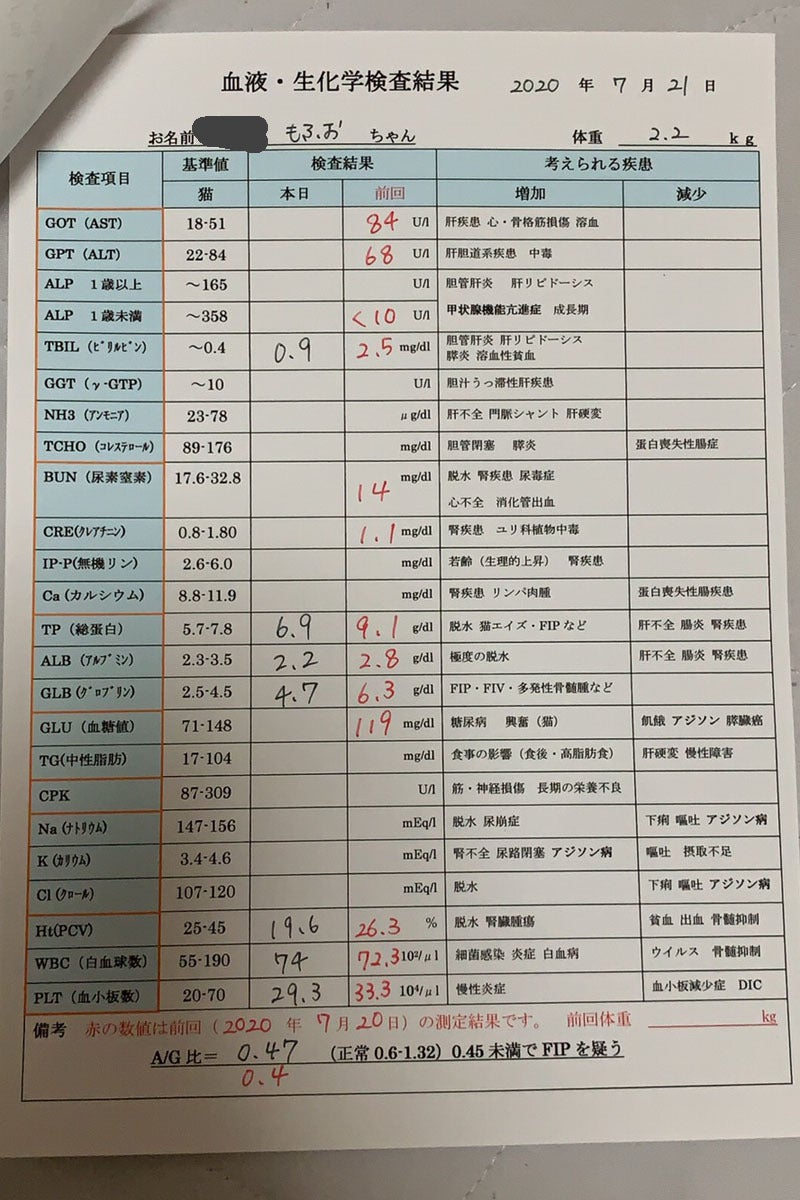 血液・生化学検査結果 2020 年 7 月 21 日
お名前 もふお ちゃん 体重 2.2 kg
検査項目 基準値 検査結果 考えられる疾患
猫 本日 前回 増加 減少
GOT (AST) 18-51 84 U/l 肝疾患 心・骨格筋損傷 溶血
GPT (ALT) 22-84 68 U/l 肝胆道系疾患 中毒
ALP 1歳以上 ～165 U/l 胆管肝炎 肝リピドーシス
ALP 1歳未満 ～358 <10 U/l 甲状腺機能亢進症 成長期
TBIL (ﾋﾞﾘﾙﾋﾞﾝ) ～0.4 0.9 2.5 mg/dl 胆管肝炎 肝リピドーシス
膵炎 溶血性貧血
GGT (γ-GTP) ～10 U/l 胆汁うっ滞性肝疾患
NH3 (ｱﾝﾓﾆｱ) 23-78 μg/dl 肝不全 門脈シャント 肝硬変
TCHO (ｺﾚｽﾃﾛｰﾙ) 89-176 mg/dl 胆管閉塞 膵炎 蛋白喪失性腸症
BUN (尿素窒素) 17.6-32.8 14 mg/dl 脱水 腎疾患 尿毒症
心不全 消化管出血
CRE(ｸﾚｱﾁﾆﾝ) 0.8-1.80 1.1 mg/dl 腎疾患 ユリ科植物中毒
IP-P(無機リン) 2.6-6.0 mg/dl 若齢（生理的上昇） 腎疾患
Ca (カルシウム) 8.8-11.9 mg/dl 腎疾患 リンパ肉腫 蛋白喪失性腸疾患
TP (総蛋白) 5.7-7.8 6.9 9.1 g/dl 脱水 猫エイズ・FIP など 肝不全 腸炎 腎疾患
ALB (ｱﾙﾌﾞﾐﾝ) 2.3-3.5 2.2 2.8 g/dl 極度の脱水 肝不全 腸炎 腎疾患
GLB (ｸﾞﾛﾌﾞﾘﾝ) 2.5-4.5 4.7 6.3 g/dl FIP・FIV・多発性骨髄腫など
GLU (血糖値) 71-148 119 mg/dl 糖尿病 興奮（猫） 飢餓 アジソン 膵臓癌
TG(中性脂肪) 17-104 mg/dl 食事の影響（食後・高脂肪食） 肝硬変 慢性障害
CPK 87-309 U/l 筋・神経損傷 長期の栄養不良
Na (ﾅﾄﾘｳﾑ) 147-156 mEq/l 脱水 尿崩症 下痢 嘔吐 アジソン病
K (ｶﾘｳﾑ) 3.4-4.6 mEq/l 腎不全 尿路閉塞 アジソン病 嘔吐 摂取不足
Cl (ｸﾛｰﾙ) 107-120 mEq/l 脱水 下痢 嘔吐 アジソン病
Ht(PCV) 25-45 19.6 26.3 % 脱水 腎臓腫瘍 貧血 出血 骨髄抑制
WBC (白血球数) 55-190 74 72.3 10²/μl 細菌感染 炎症 白血病 ウイルス 骨髄抑制
PLT (血小板数) 20-70 29.3 33.3 10⁴/μl 慢性炎症 血小板減少症 DIC
備考 赤の数値は前回（2020 年 7月 20日）の測定結果です。 前回体重 kg
A/G 比＝ 0.47 （正常 0.6-1.32）0.45 未満で FIP を疑う
0.4